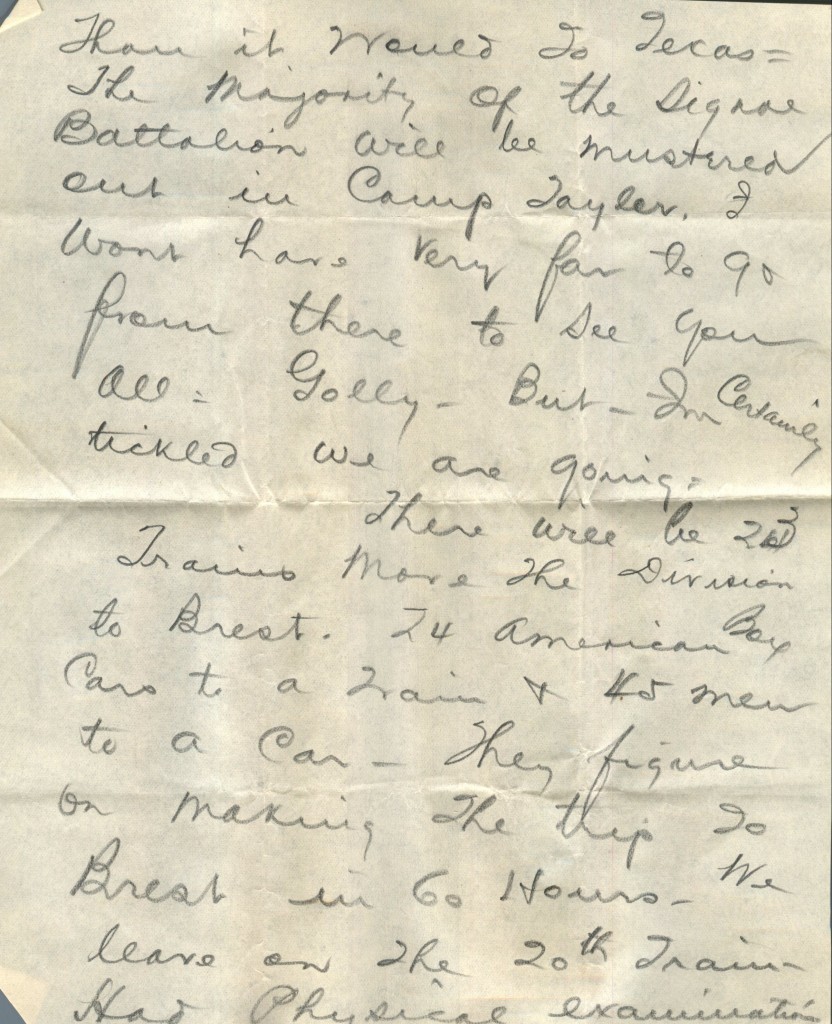 Than it Would To Texas =
The Majority of the Signal
Battalion will be mustered
out in Camp Tayler. I
Wont have very far to go
from there to See you
All = Golly - But - Im Certainly
tickled we are going.
There will be
Trains Move The Division
to Brest. 24 American Box
Cars to a Train & 45 men
to a Car - They figure
on Making The trip To
Brest in 60 Hours - We
leave on The 20th Train -
Had Physical examination